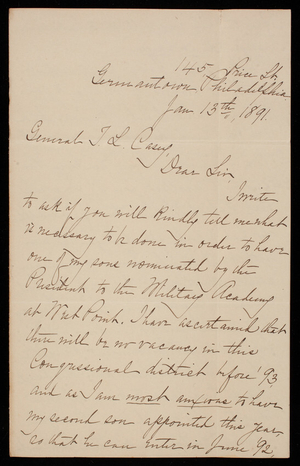 145 Price St.
Germantown Philadelphia
Jan 13th, 1891.
General T. L. Casey,
Dear Sir
I write
to ask if you will kindly tell me what
is necessary to be done in order to have
one of my sons nominated by the
President to the Military Academy
at West Point. I have ascertained that
there will be no vacancy in this
Congressional district before '93
and as I am most anxious to have
my second son appointed this year
so that he can enter in June '92,